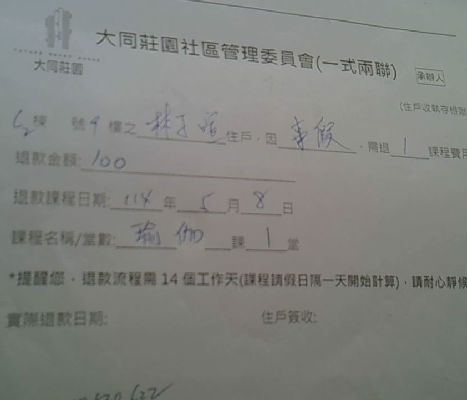 大同莊園
大同莊園社區管理委員會(一式兩聯)
承辦人
(住戶收執存根聯
C2棟 號9樓之 林 住戶,因 事假 ,需退 1 課程費用
退款金額: 100
退款課程日期: 114 年 5 月 8 日
課程名稱/堂數: 瑜伽 課 1 堂
*提醒您,退款流程需14個工作天(課程請假日隔一天開始計算),請耐心靜候
實際退款日期: 住戶簽收: